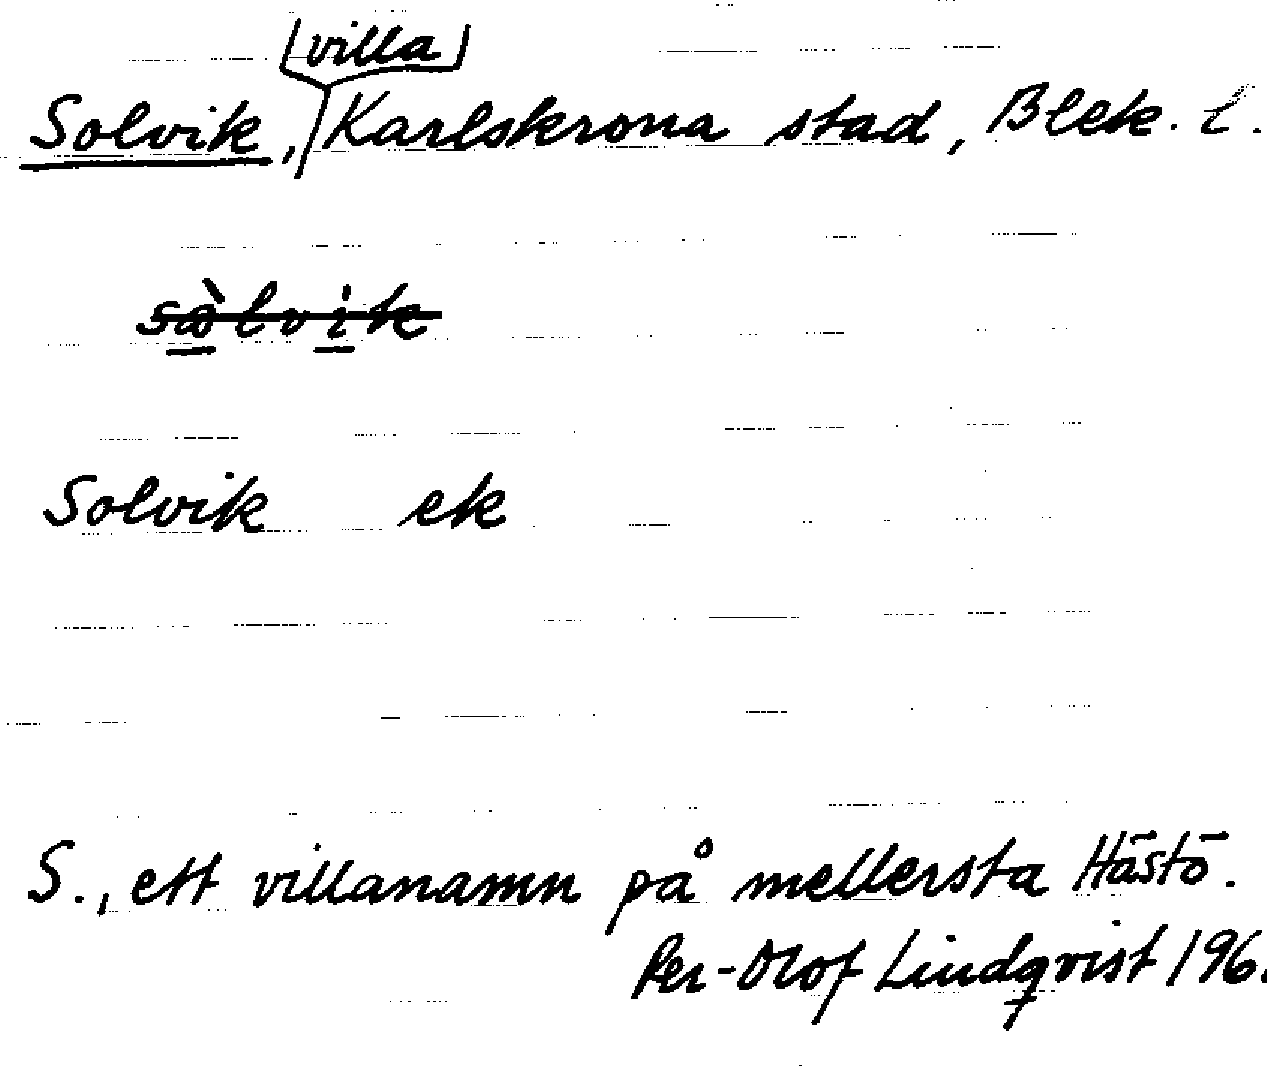 villa
Solvik, Karlskrona stad, Blek. l.
sàlvik
Solvik ek
S., ett villanamn på mellersta Hästö.
Per-Olof Lindqvist 196